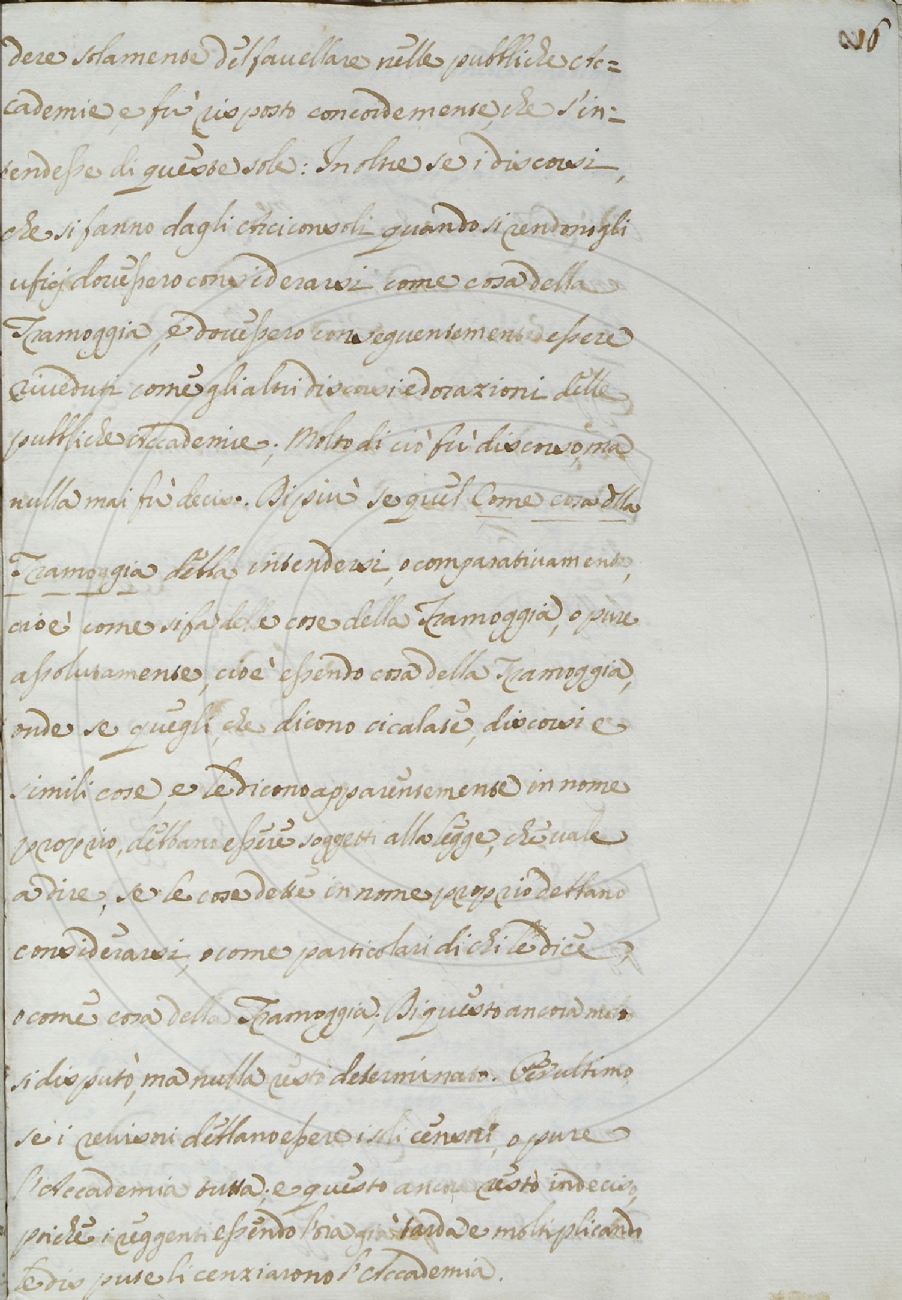 216
dere solamente del favellare nelle pubbliche Ac=
cademie, e fù risposto concordemente, che s'in=
tendesse di queste sole: Inoltre se i discorsi,
che si fanno dagli Arciconsoli quando si rendono gli
ufizj dovessero considerarsi come cosa della
Tramoggia, e dovessero conseguentemente essere
riveduti come gli altri discorsi ed orazioni delle
pubbliche Accademie; Molto di ciò fù discorso, ma
nulla mai fù deciso. Di più se quel Come cosa dlla
Tramoggia debba intendersi, o comparativamente,
cioè come si fà delle cose della Tramoggia, o pure
assolutamente, cioè essendo cosa della Tramoggia,
onde se quegli, che dicono cicalate, discorsi e
simili cose, e le dicono apparentemente in nome
proprio, debbano essere soggetti alla legge, che vale
a dire, se le cose dette in nome proprio debbano
considerarsi, o come particolari di chi le dice,
o come cosa della Tramoggia; Di questo ancora molto
si disputò, ma nulla restò determinato. Per ultimo
se i revisori debbano essere i soli censori, o pure
l'Accademia tutta; e questo ancora restò indeciso,
poiche i reggenti essendo l'ora già tarda e moltiplicando
le dispute licenziarono l'Accademia.